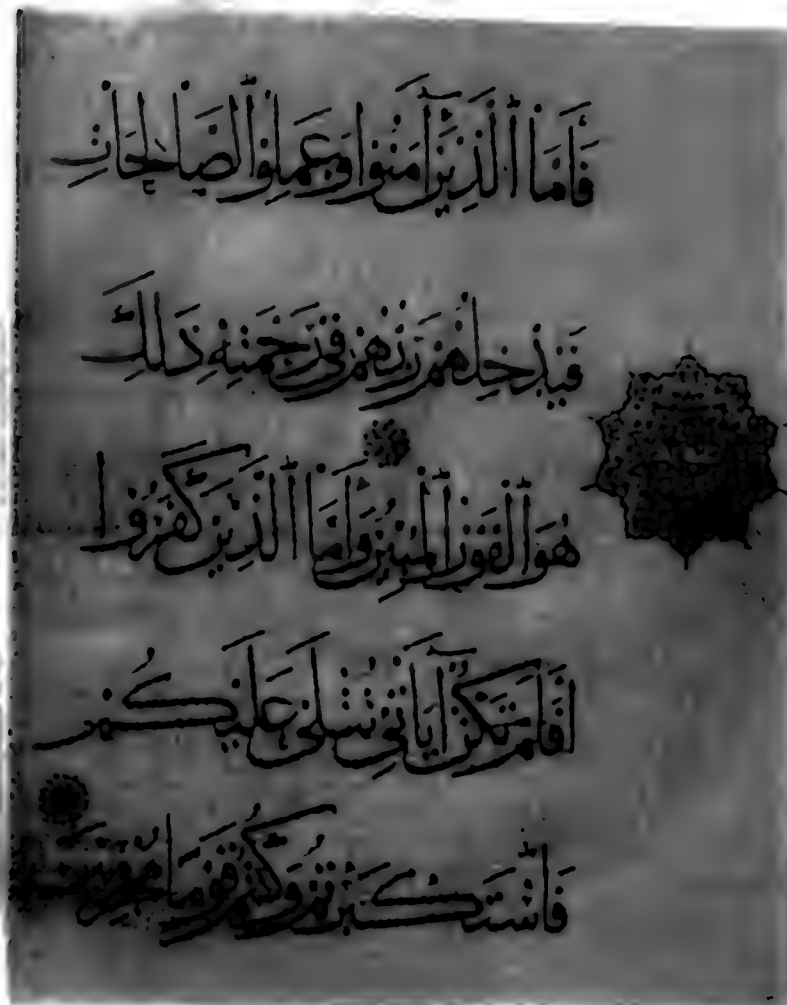 فَأَمَّا ٱلَّذِينَ آمَنُوا وَعَمِلُوا ٱلصَّالِحَاتِ
فَيُدْخِلُهُمْ رَبُّهُمْ فِي رَحْمَتِهِ ذَلِكَ
هُوَ ٱلْفَوْزُ ٱلْمُبِينُ وَأَمَّا ٱلَّذِينَ كَفَرُوا
أَفَلَمْ تَكُنْ آيَاتِي تُتْلَى عَلَيْكُمْ
فَٱسْتَكْبَرْتُمْ وَكُنْتُمْ قَوْمًا مُجْرِمِينَ